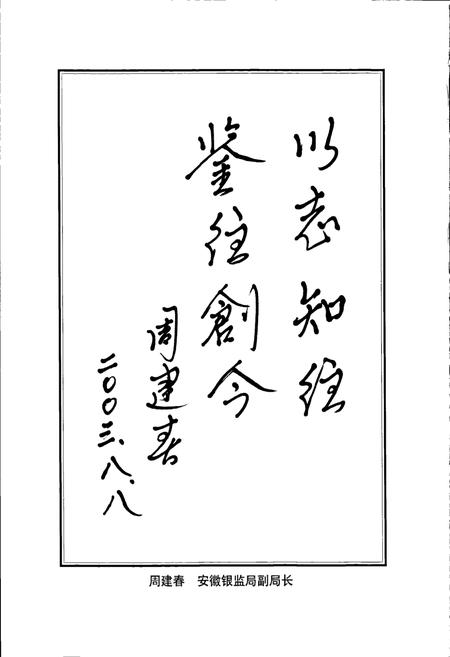 以志知往
鉴往創今
周建春
二〇〇三.八.八
周建春 安徽银监局副局长